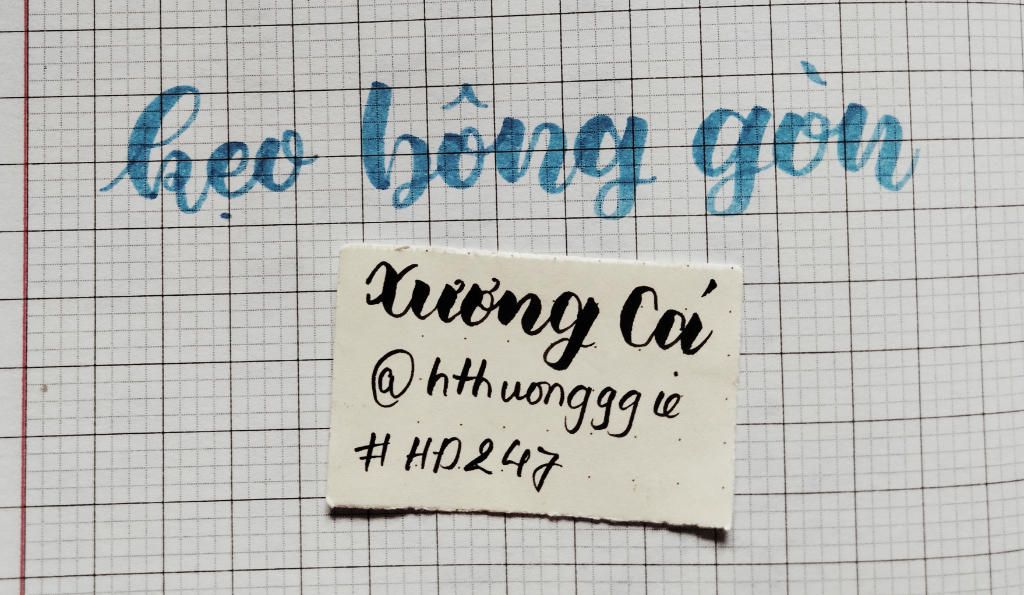 kẹo bông gòn
Xương Cá
@hthuongggie
#HD247